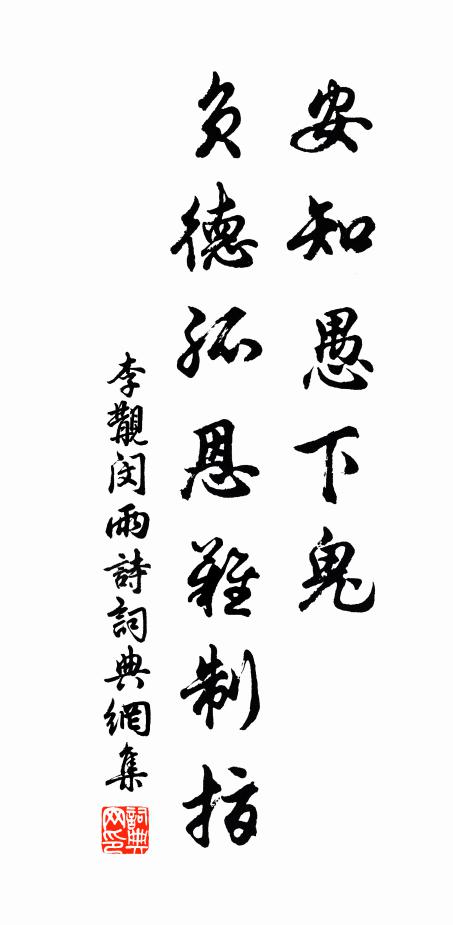 安知愚下鬼
负德孤恩难制指
李覯闵雨詩詞典網集
詞典网印